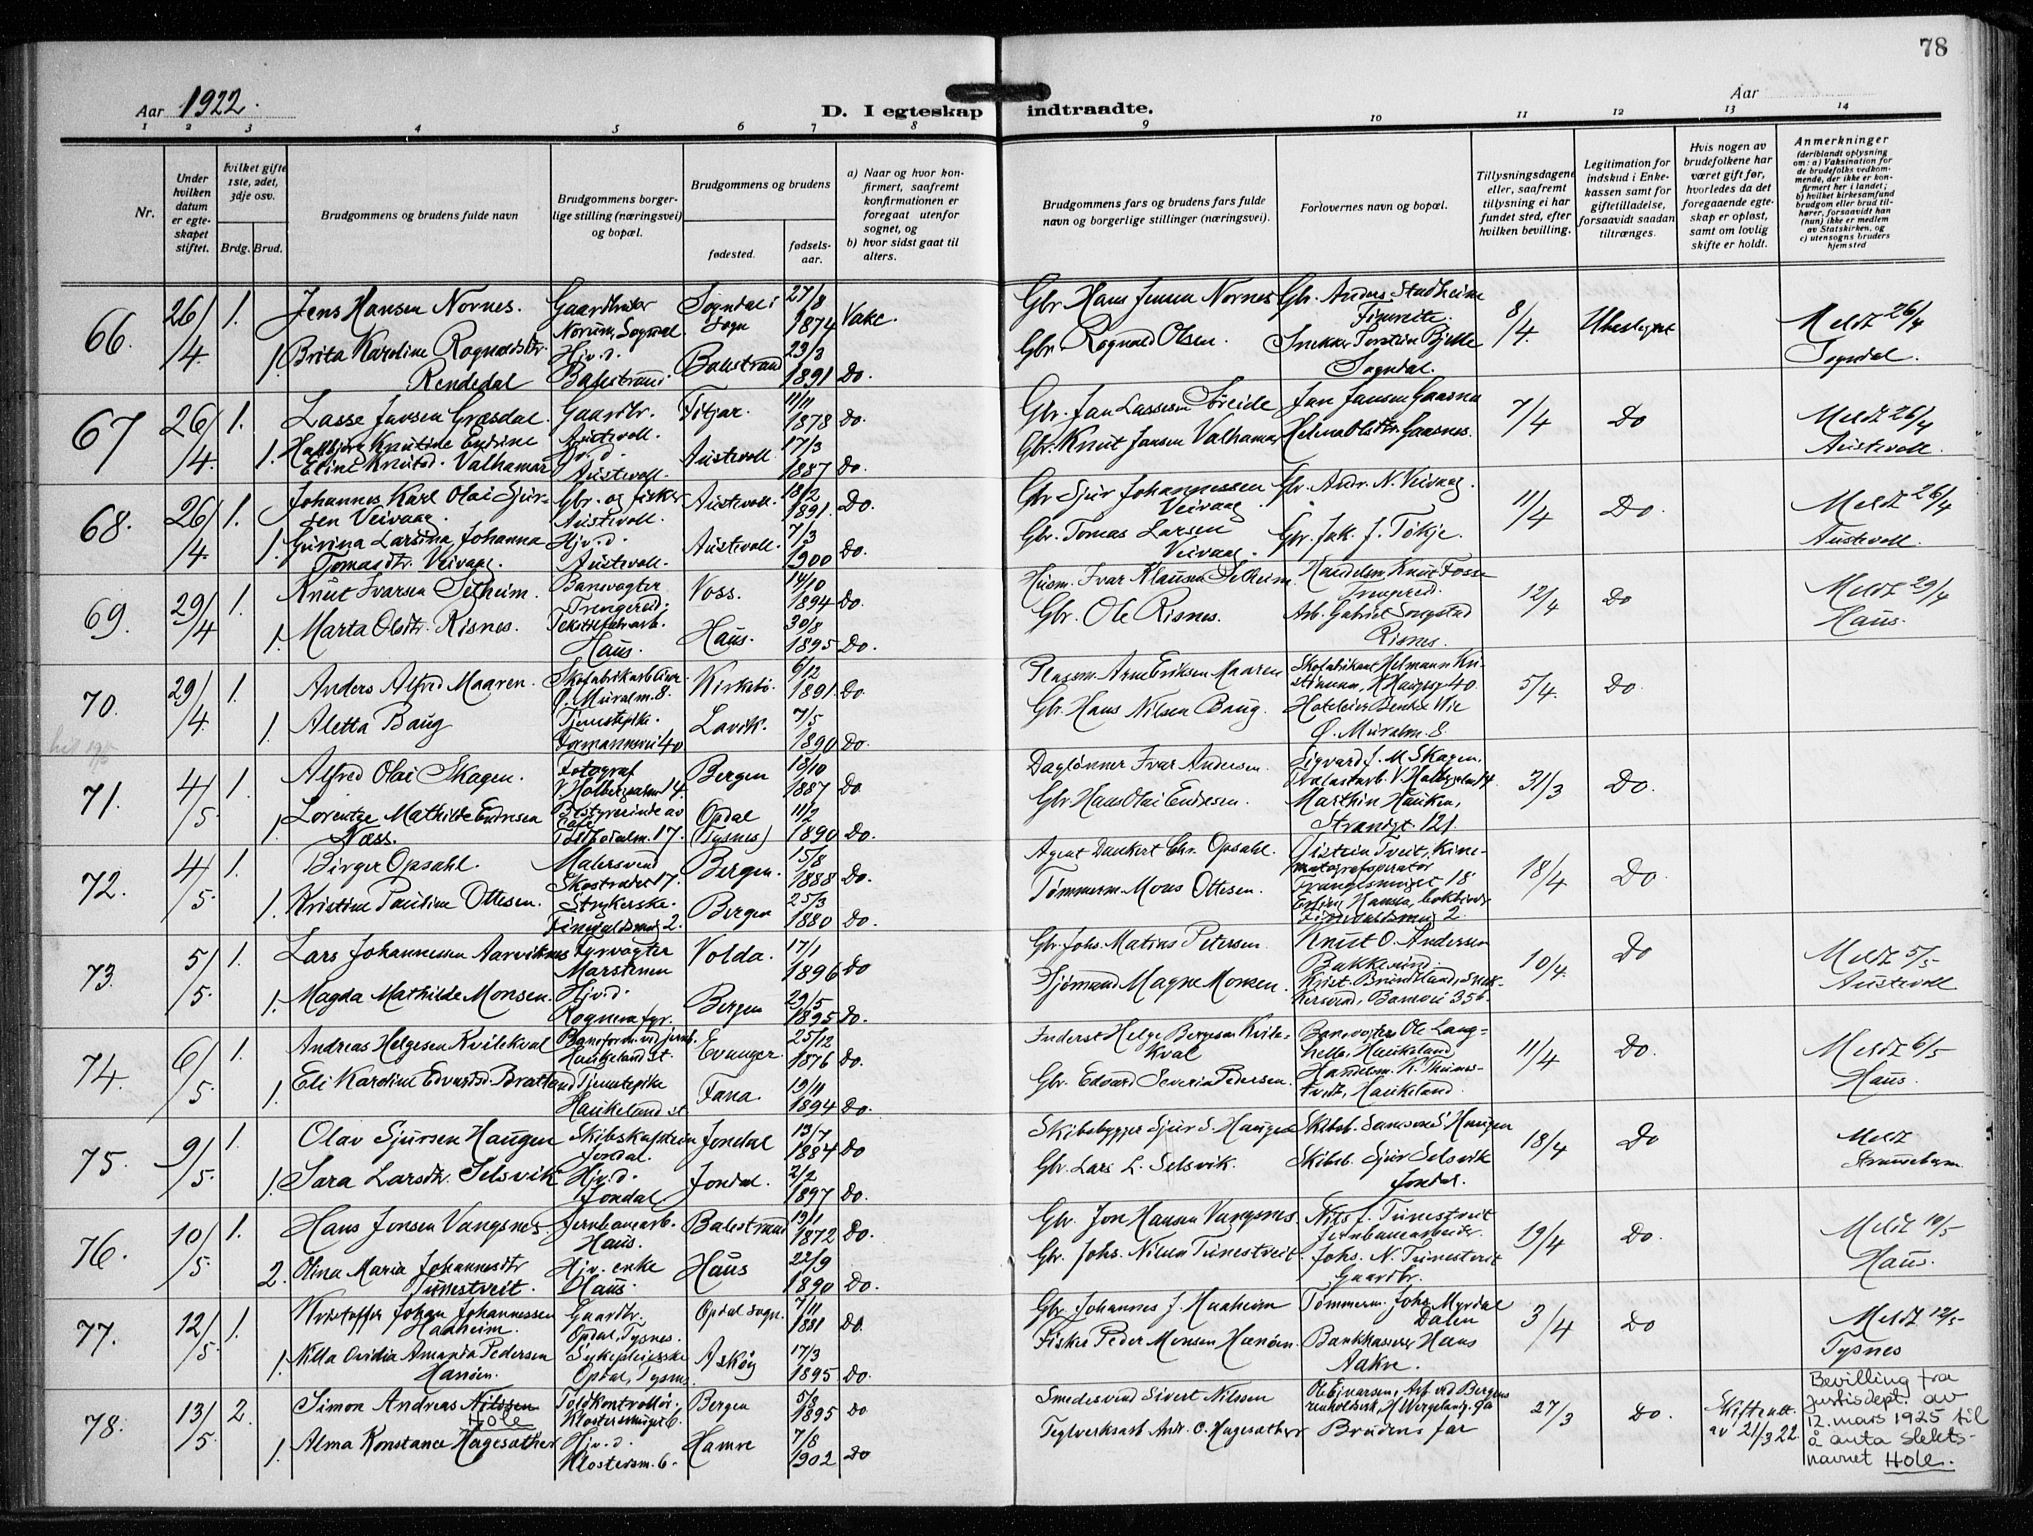 78
Aar 1922.
D. I egteskap indtraadte.
Aar
1 2 3 4 5 6 7 8 9 10 11 12 13 14
Nr.
Under hvilken datum er egteskapet stiftet.
hvilket gifte 1ste, 2det, 3dje osv.
Brdg. Brud.
Brudgommens og brudens fulde navn
Brudgommens borgerlige stilling (næringsvei) og bopæl.
Brudgommens og brudens
fødested.
fødselsaar.
a) Naar og hvor konfirmert, saafremt konfirmationen er foregaat utenfor sognet, og
b) hvor sidst gaat til alters.
Brudgommens fars og brudens fars fulde navn og borgerlige stillinger (næringsvei).
Forlovernes navn og bopæl.
Tillysningsdagene eller, saafremt tillysning ei har fundet sted, efter hvilken bevilling.
Legitimation for indskud i Enkekassen samt for giftetilladelse, forsaavidt saadan tiltrænges.
Hvis nogen av brudefolkene har været gift før, hvorledes da det foregaaende egteskap er opløst, samt om lovlig skifte er holdt.
Anmerkninger
(deriblandt oplysning om: a) Vaksination for de brudefolks vedkommende, der ikke er konfirmert her i landet; b) hvilket kirkesamfund brudgom eller brud tilhører, forsaavidt han (hun) ikke er medlem av Statskirken, og c) utensogns bruders hjemsted
66. 26/4 1. Jens Hansen Nornes. Gaardbruker Norum, Sogndal Sogndal i Sogn 27/8 1874 Gbr. Hans Jensen Nornes Gbr. Anders Stadheim 8/4 Meldt 26/4 Sogndal.
1. Brita Karoline Rognaldsdtr. Rendedal Hjv.d. Balestrand Balestrand 23/3 1891 Do. Gbr. Rognald Olsen. Snekker Torstein Sogndal.
67 26/4 1. Lasse Jansen Græsdal. Gaardbr. Austevoll. Fitjar. 11/11 1878 Do. Gbr. Jan Lassesen Søreide Jan Jansen Gaasnes 7/4 Do Meldt 26/4 Austevoll
1. Knutine Endrine Eline Knutsd. Valhamar Hjv.d. Austevoll. Austevoll 17/3 1887 Do. Gbr. Knut Jansen Valhamar Helena Olsdtr. Gaasnes.
68. 26/4 1. Johannes Karl Olai Sjursen Veivaag. Gbr. og fisker Austevoll. Austevoll. 18/2 1891. Do. Gbr Sjur Johannessen Veivaag Gbr. Andr. N. Veivaag. 11/4 Do. Meldt 26/4 Austevoll.
1. Gurina Larsina Johanna Tomasdtr. Veivaag. Hjv.d. Austevoll. Austevoll. 7/3 1900 Do. Gbr. Tomas Larsen Veivaag. Gbr. Jak. J. Tøkje.
69. 29/4 1. Knut Ivarsen Selheim. Banevogter Trengereid; Voss. 14/10 1894 Do. Husm. Ivar Klausen Selheim. Handelsm. Knut Fosse Trengereid. 12/4 Do Meldt 29/4 Haus.
1. Marta Olsdtr. Risnes. Haus. Haus. 30/8 1895 Do. Gbr. Ole Risnes. Arb. Gabriel Songstad Risnes.
70. 29/4 1. Anders Alfred Maaren. Ø. Muralm. 8. Kirkebø. 6/12 1891 Do Arne Eriksen Maaren Skofabrikant Helmann Kristiansen, H Haugesg 40. 5/4. Do.
1. Aletta Baug Tjenestepike. Formannsvei 40 Lavik. 7/5 1890 Do. Gbr. Hans Nilsen Baug. Hoteleier Wie Ø. Muralm. 8
71. 4/5 1. Alfred Olai Skagen. Fotograf V. Holbergsalm 14. Bergen 18/10 1887 Do Dagløner Ivar Andersen. Sigvard J. M. Skagen, V. Holbergsalm 14 31/3 Do.
1. Lorentze Mathilde Endresen Næss. Bestyrerinde av Café Toldbodalm. 17. Opdal (Tysnes) 11/2 1890 Do. Gbr. Hans Olai Endresen. Marthin Hauken, Strandgt. 121.
72. 4/5. 1. Birger Opsahl. Malersvend Skostrædet 17. Bergen. 15/8 1888 Do. Agent Dankert Chr. Opsahl. Øistein Tveit, Kinematografoperatør 18 18/4 Do.
1. Kristine Pauline Ottesen. Strykerske. 2. Bergen 25/3 1880 Do. Tømmerm. Mons Ottesen. Hansen, bokbinder 2.
73. 5/5. 1. Lars Johannessen Aarviknes Fyrvogter Marstenen Volda. 17/1 1896 Do Gbr. Johs. Matias Petersen. Knut O. Andersen Bakkesund. 10/4. Do Meldt 5/5 Austevoll
1. Magda Mathilde Monsen. Hjv.d. fyr. Bergen 29/5 1895 Do. Sjømand Magne Monsen. Krist. Brundtland, snekkersvend, 35 b.
74. 6/5 1. Andreas Helgesen Kvilekval Baneform. ved jernb. Haukeland st. Evanger. 25/12 1876 Do. Inderst Helge Bergesen Kvilekval Banevogter Ole Langhelle, Haukeland 11/4 Do. Meldt 6/5 Haus.
1. Eli Karoline Edvardsd. Bratland Tjenestepike Haukeland st Fana. 19/11 1894 Do. Gbr. Edvard Severin Pedersen. Handelsm. K. Tveit, Haukeland.
75. 9/5. 1. Olav Sjursen Haugen Skibskaptein Jondal. Jondal 13/7 1884 Do Skibsbygger Sjur S. Haugen Skibsb. Samson S. Haugen 18/4 Do Meldt Strandebarm
1. Sara Larsdtr. Selsvik Hjv.d. Jondal Jondal. 2/2 1897 Do. Gbr. Lars L. Selsvik. Skibsb. Sjur Selsvik Jondal.
76. 10/5 1. Hans Jonsen Vangsnes. Jernbanearb. Haus. Balestrand 19/1 1872 Do. Gbr. Jon Hansen Vangsnes. Nils J. Tunestveit Jernbanearbeider. 19/4 Do. Meldt 10/5 Haus.
2. Olina Maria Johannesdtr Tunestveit. Hjv. enke Haus. Haus 22/9 1890 Do. Gbr. Johs. Nilsen Tunestveit. Johs. N. Tunestveit Gaardbr.
77. 12/5 1. Kristoffer Johan Johannessen Haaheim. Gaardbr. Opdal, Tysnes. Opdal sogn. 7/11 1881 Do. Gbr. Johannes J. Haaheim Tømmerm. Johs. Myrdal Dalen 3/4 Do Meldt 12/5 Tysnes
1. Nilla Ovidia Amanda Pedersen Hanøen. Sykepleierske Opdal, Tysnes Askøy 17/3 1895 Do. Fisker Peder Monsen Hanøen. Bankkasserer Hans Aakre.
78. 13/5. 2. Simon Andreas Nilssen Hole Toldkontrollør, Klostersmuget 6. Bergen 5/8 1895 Do Smedesvend Sivert Nilssen Ole Ejnarsen, Arb. ved Bergens renholdsv., H. Wergelandsg. 9a 27/3 Do. Skifteatt. av 21/3 22. Bevilling fra Justisdept. av 12. mars 1925 til å anta slektsnavnet Hole.
1. Alma Konstance Hagesæther Hjv.d. Klostersm. 6. Hamre 7/8 1902 Do Teglverksarb. Andr. C. Hagesæther Brudens far